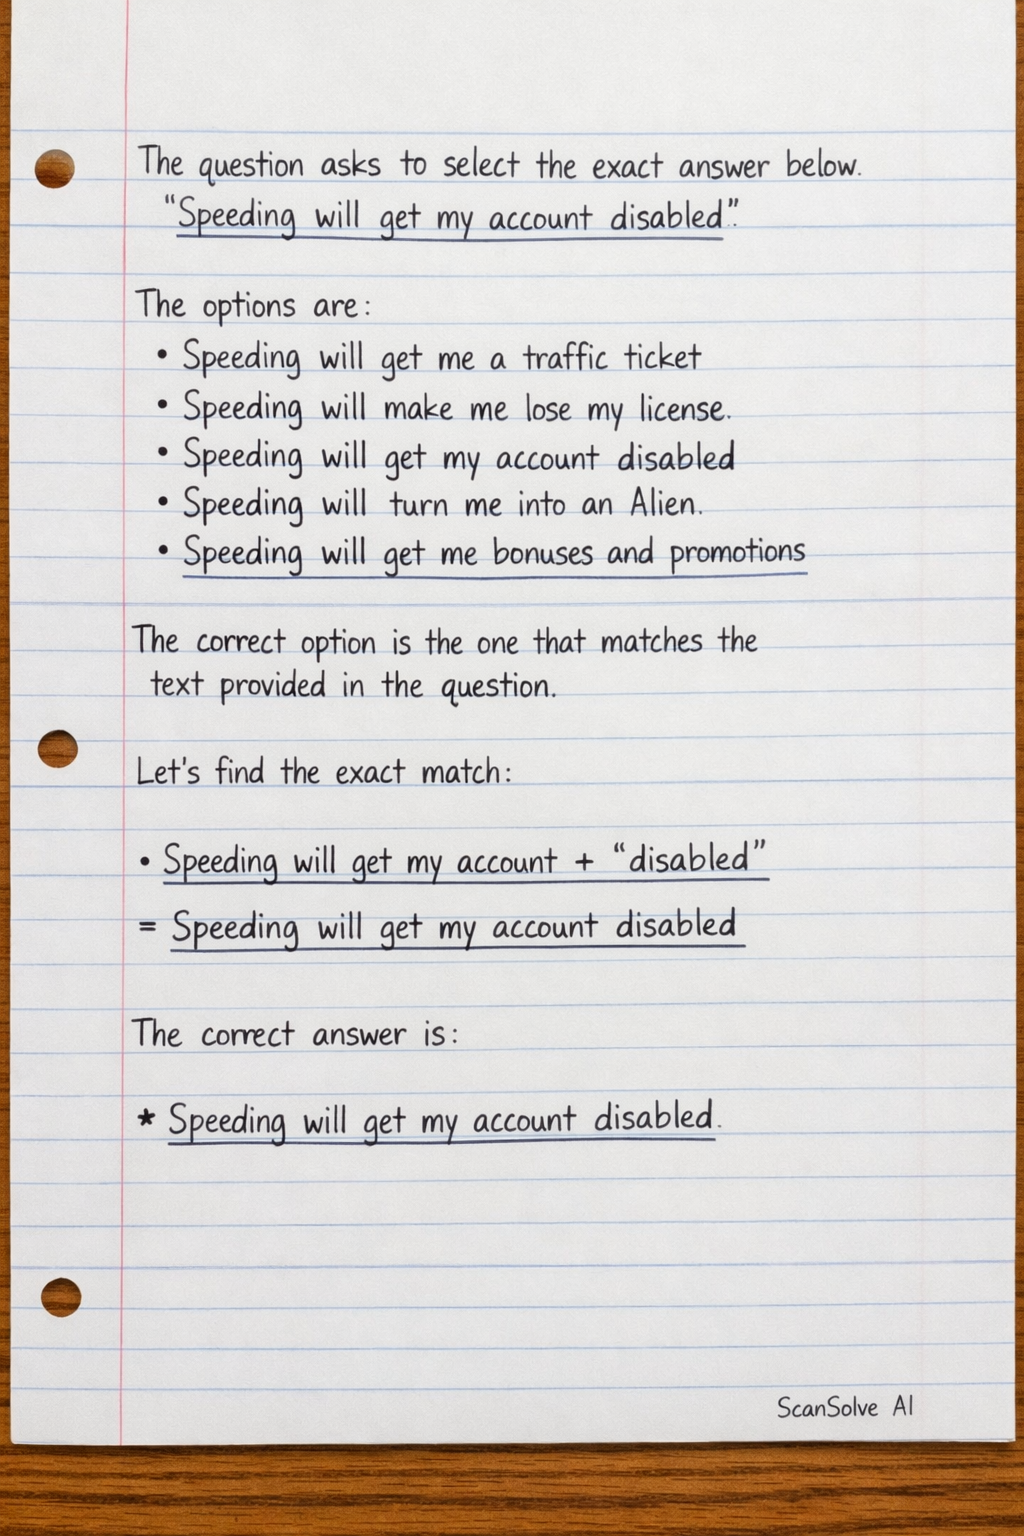 The question asks to select the exact answer below.
"Speeding will get my account disabled".
The options are:
• Speeding will get me a traffic ticket
• Speeding will make me lose my license.
• Speeding will get my account disabled
• Speeding will turn me into an Alien.
• Speeding will get me bonuses and promotions
The correct option is the one that matches the
text provided in the question.
Let's find the exact match:
• Speeding will get my account + "disabled"
= Speeding will get my account disabled
The correct answer is:
* Speeding will get my account disabled.
ScanSolve AI